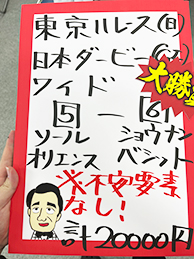 東京11レース(日)
日本ダービー(G1)
大勝負
ワイド
5 - 6
ソール ショウナン
オリエンス バシット
※不安要素
なし!
計20000円